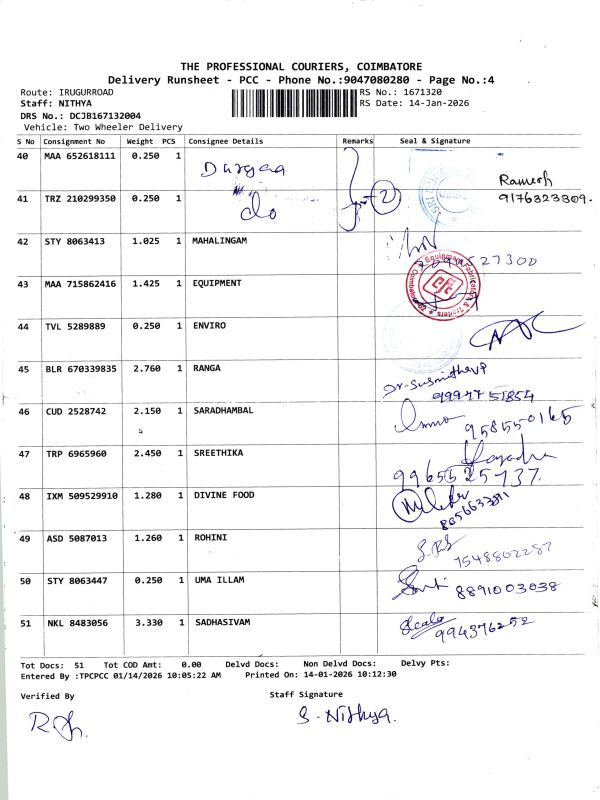 THE PROFESSIONAL COURIERS, COIMBATORE
Delivery Runsheet - PCC - Phone No.:9047080280 - Page No.:4
Route: IRUGURROAD RS No.: 1671320
Staff: NITHYA RS Date: 14-Jan-2026
DRS No.: DCJB167132004
Vehicle: Two Wheeler Delivery
S No Consignment No Weight PCS Consignee Details Remarks Seal & Signature
40 MAA 652618111 0.250 1 Durgaa Ramesh
41 TRZ 210299350 0.250 1 do 2 9176323309.
42 STY 8063413 1.025 1 MAHALINGAM 27300
43 MAA 715862416 1.425 1 EQUIPMENT
44 TVL 5289889 0.250 1 ENVIRO
45 BLR 670339835 2.760 1 RANGA
9994751854
46 CUD 2528742 2.150 1 SARADHAMBAL 9585550165
47 TRP 6965960 2.450 1 SREETHIKA
9965525737.
48 IXM 509529910 1.280 1 DIVINE FOOD
49 ASD 5087013 1.260 1 ROHINI 7548802287
50 STY 8063447 0.250 1 UMA ILLAM 8891003038
51 NKL 8483056 3.330 1 SADHASIVAM 994376252
Tot Docs: 51 Tot COD Amt: 0.00 Delvd Docs: Non Delvd Docs: Delvy Pts:
Entered By :TPCPCC 01/14/2026 10:05:22 AM Printed On: 14-01-2026 10:12:30
Verified By Staff Signature
S. Nithya.